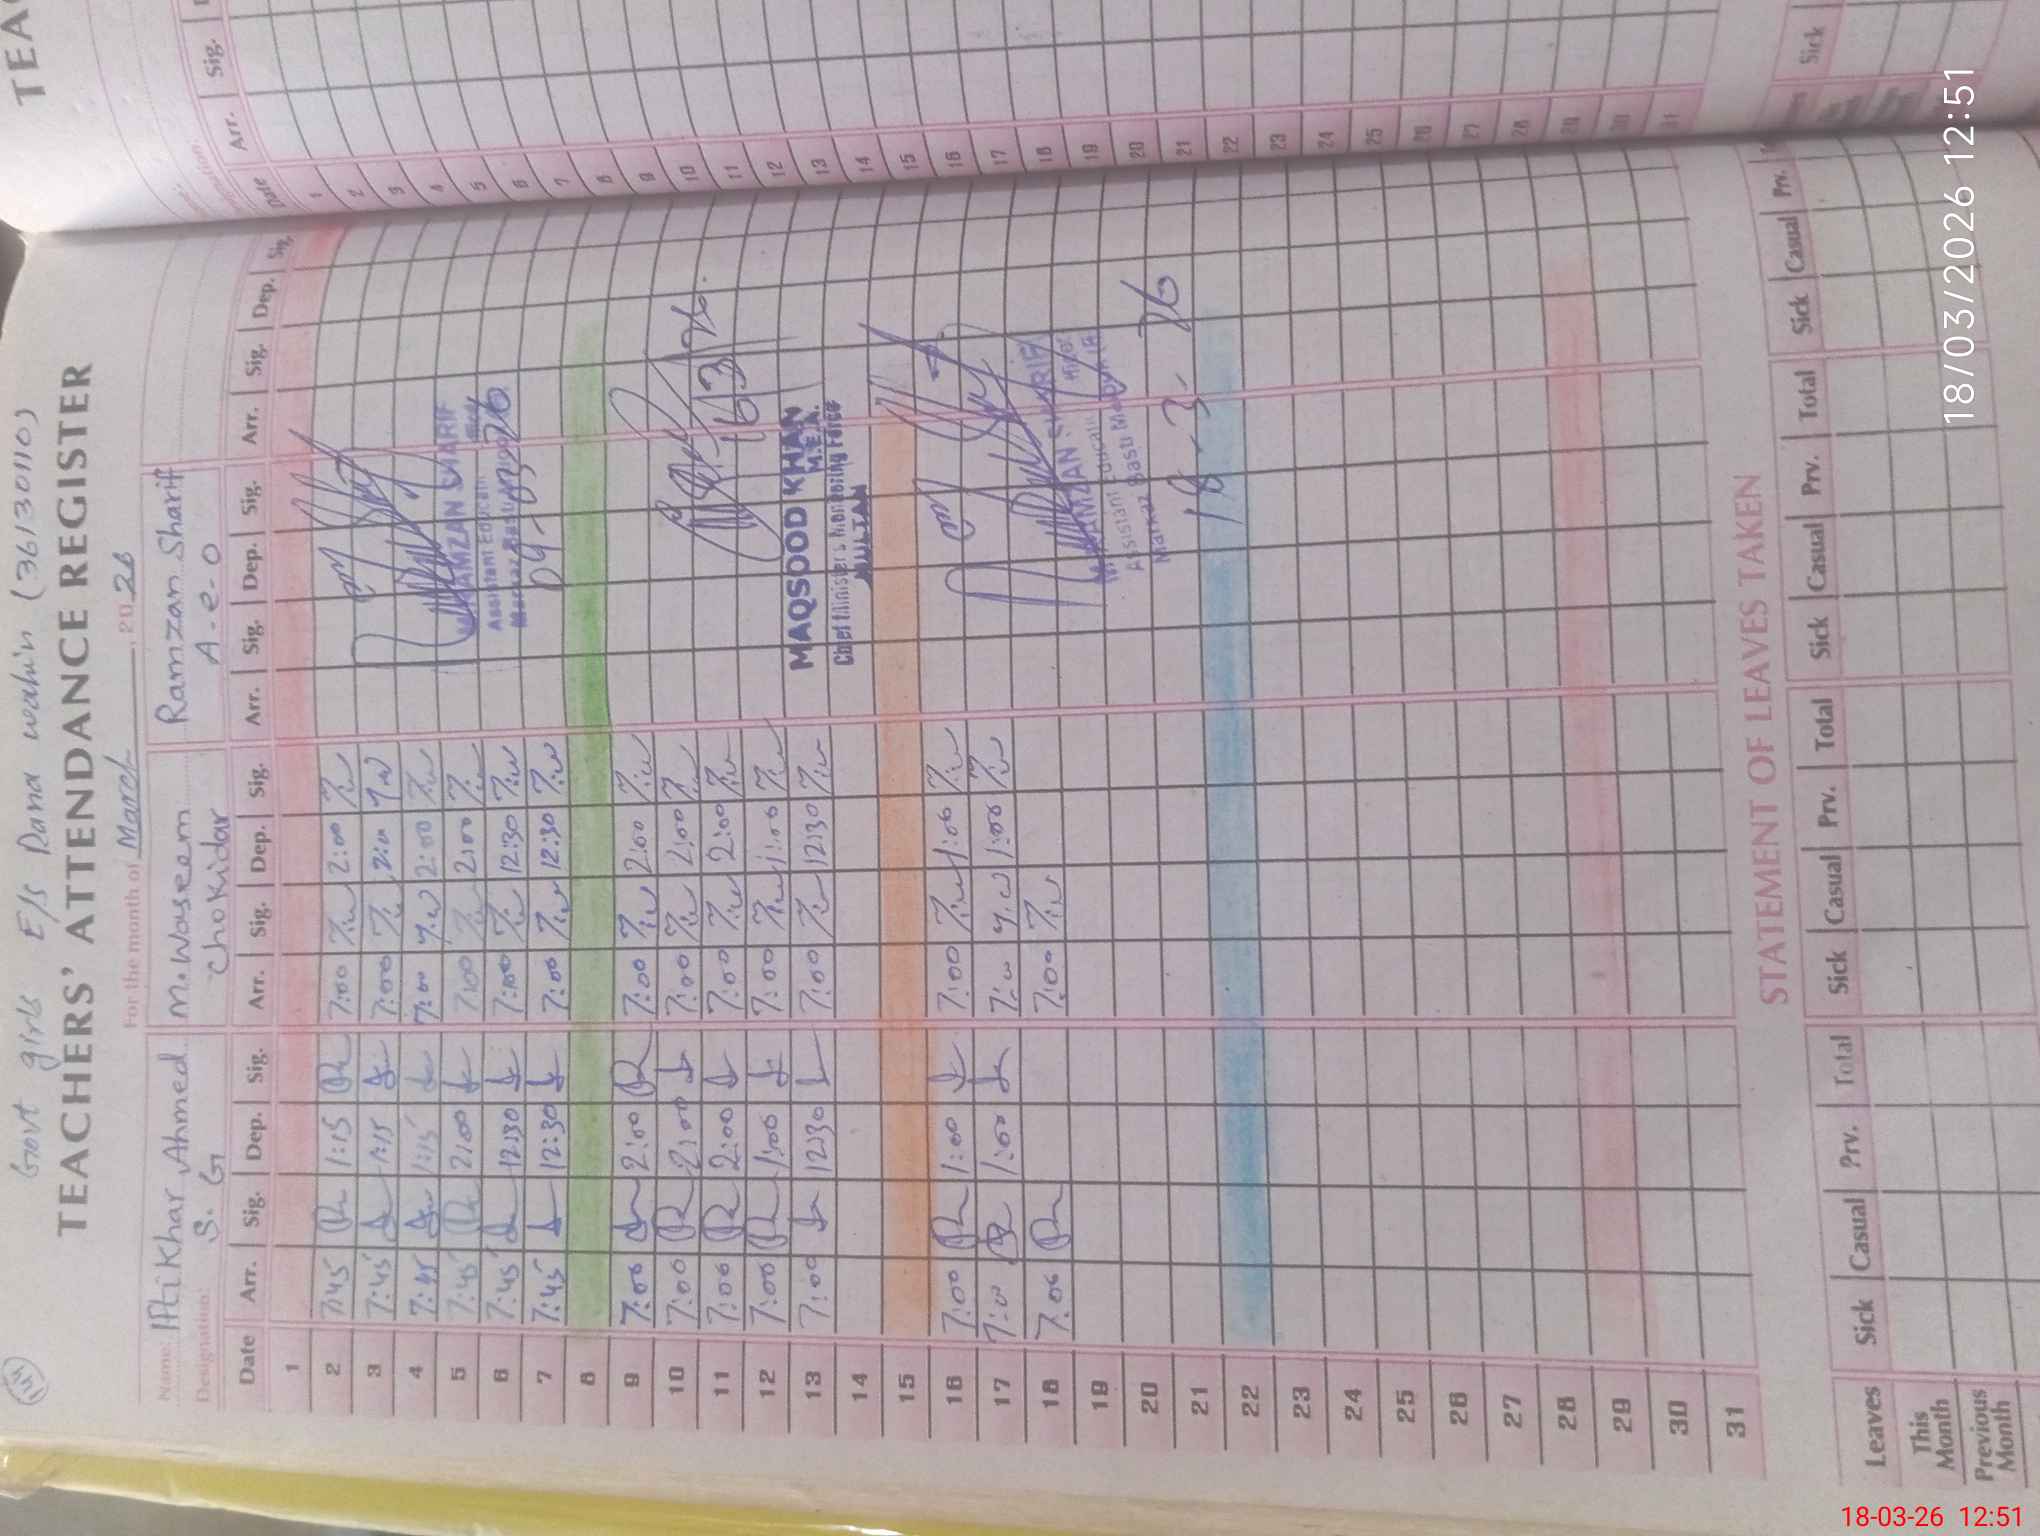 Govt girls E/s Rana wahin (36130110)
TEACHERS' ATTENDANCE REGISTER
For the month of March, 2026
Name: Iftikhar Ahmed M. Waseem Ramzan Sharif
Designation: S. G Chokidar A-e-o
Date Arr. Sig. Dep. Sig. Arr. Sig. Dep. Sig. Arr. Sig. Dep. Sig. Arr. Sig. Dep. Sig.
1
2 7:45 1:15 7:00 2:00
3 7:45 1:15 7:00 2:00
4 7:45 1:15 7:00 2:00
5 7:45 2:00 7:00 2:00
6 7:45 12:30 7:00 12:30
7 7:45 12:30 7:00 12:30
8
9 7:00 2:00 7:00 2:00
10 7:00 2:00 7:00 2:00
11 7:00 2:00 7:00 2:00
12 7:00 1:00 7:00 1:00
13 7:00 12:30 7:00 12:30
14
15
16 7:00 1:00 7:00 1:00
17 7:00 1:00 7:00 1:00
18 7:00 7:00
19
20
21
22
23
24
25
26
27
28
29
30
31
RAMZAN SHARIF
Assistant Educati
Markaz Basti
MAQSOOD KHAN
M.E.A.
Chief Minister's Monitoring Force
MULTAN
RAMZAN SHARIF
Assistant Educati
Markaz Basti
18-3-26
STATEMENT OF LEAVES TAKEN
Leaves Sick Casual Prv. Total Sick Casual Prv. Total Sick Casual Prv. Total Sick Casual Prv.
This Month
Previous Month
TEA
Date Arr. Sig.
1
2
3
4
5
6
7
8
9
10
11
12
13
14
15
16
17
18
19
20
21
22
23
24
25
26
27
28
29
30
31
Sick
18/03/2026 12:51
18-03-26 12:51